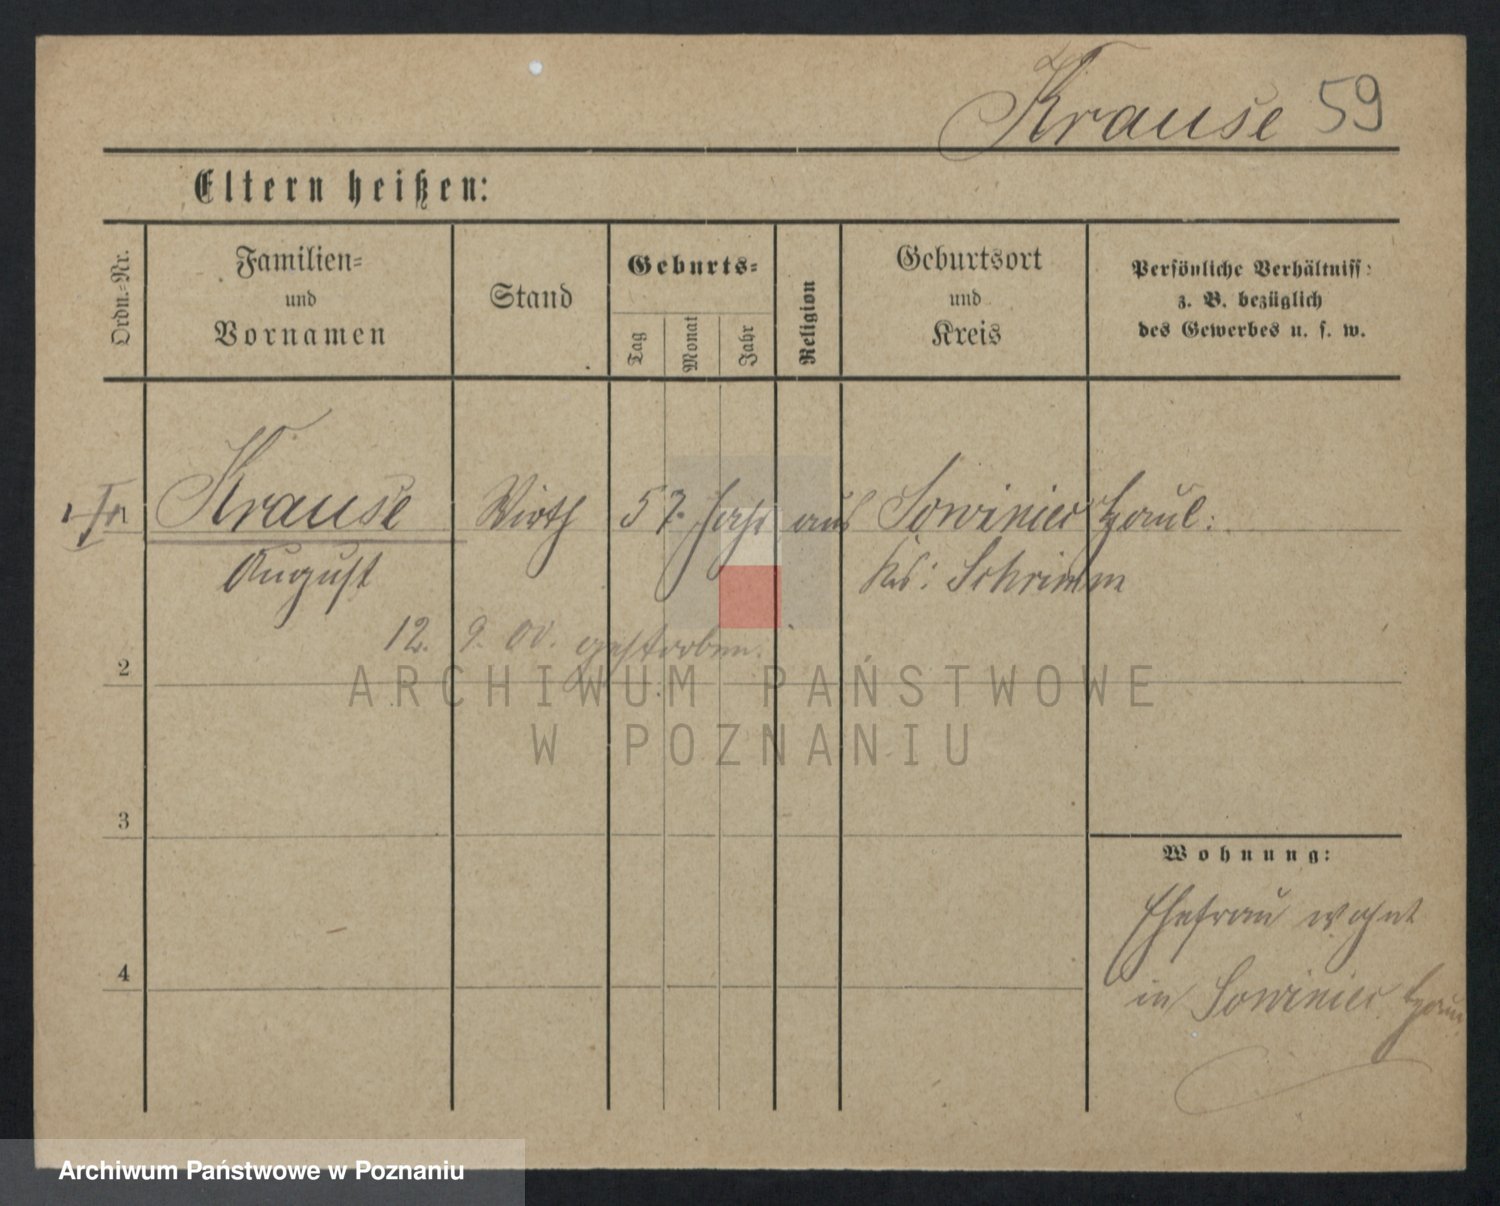 Krause 59
Eltern heißen:
Ordn.=Nr.
Familien=
und
Vornamen
Stand
Geburts=
Tag
Monat
Jahr
Religion
Geburtsort
und
Kreis
Persönliche Verhältniss:
z. B. bezüglich
des Gewerbes u. s. w.
Krause Wirth 57. Jahr aus Sowinier Haul:
August Krs: Schrimm
12. 9. 00. gestorben.
2
ARCHIWUM PAŃSTWOWE
W POZNANIU
3
Wohnung:
Ehefrau wohnt
4
in Sowinier
Archiwum Państwowe w Poznaniu